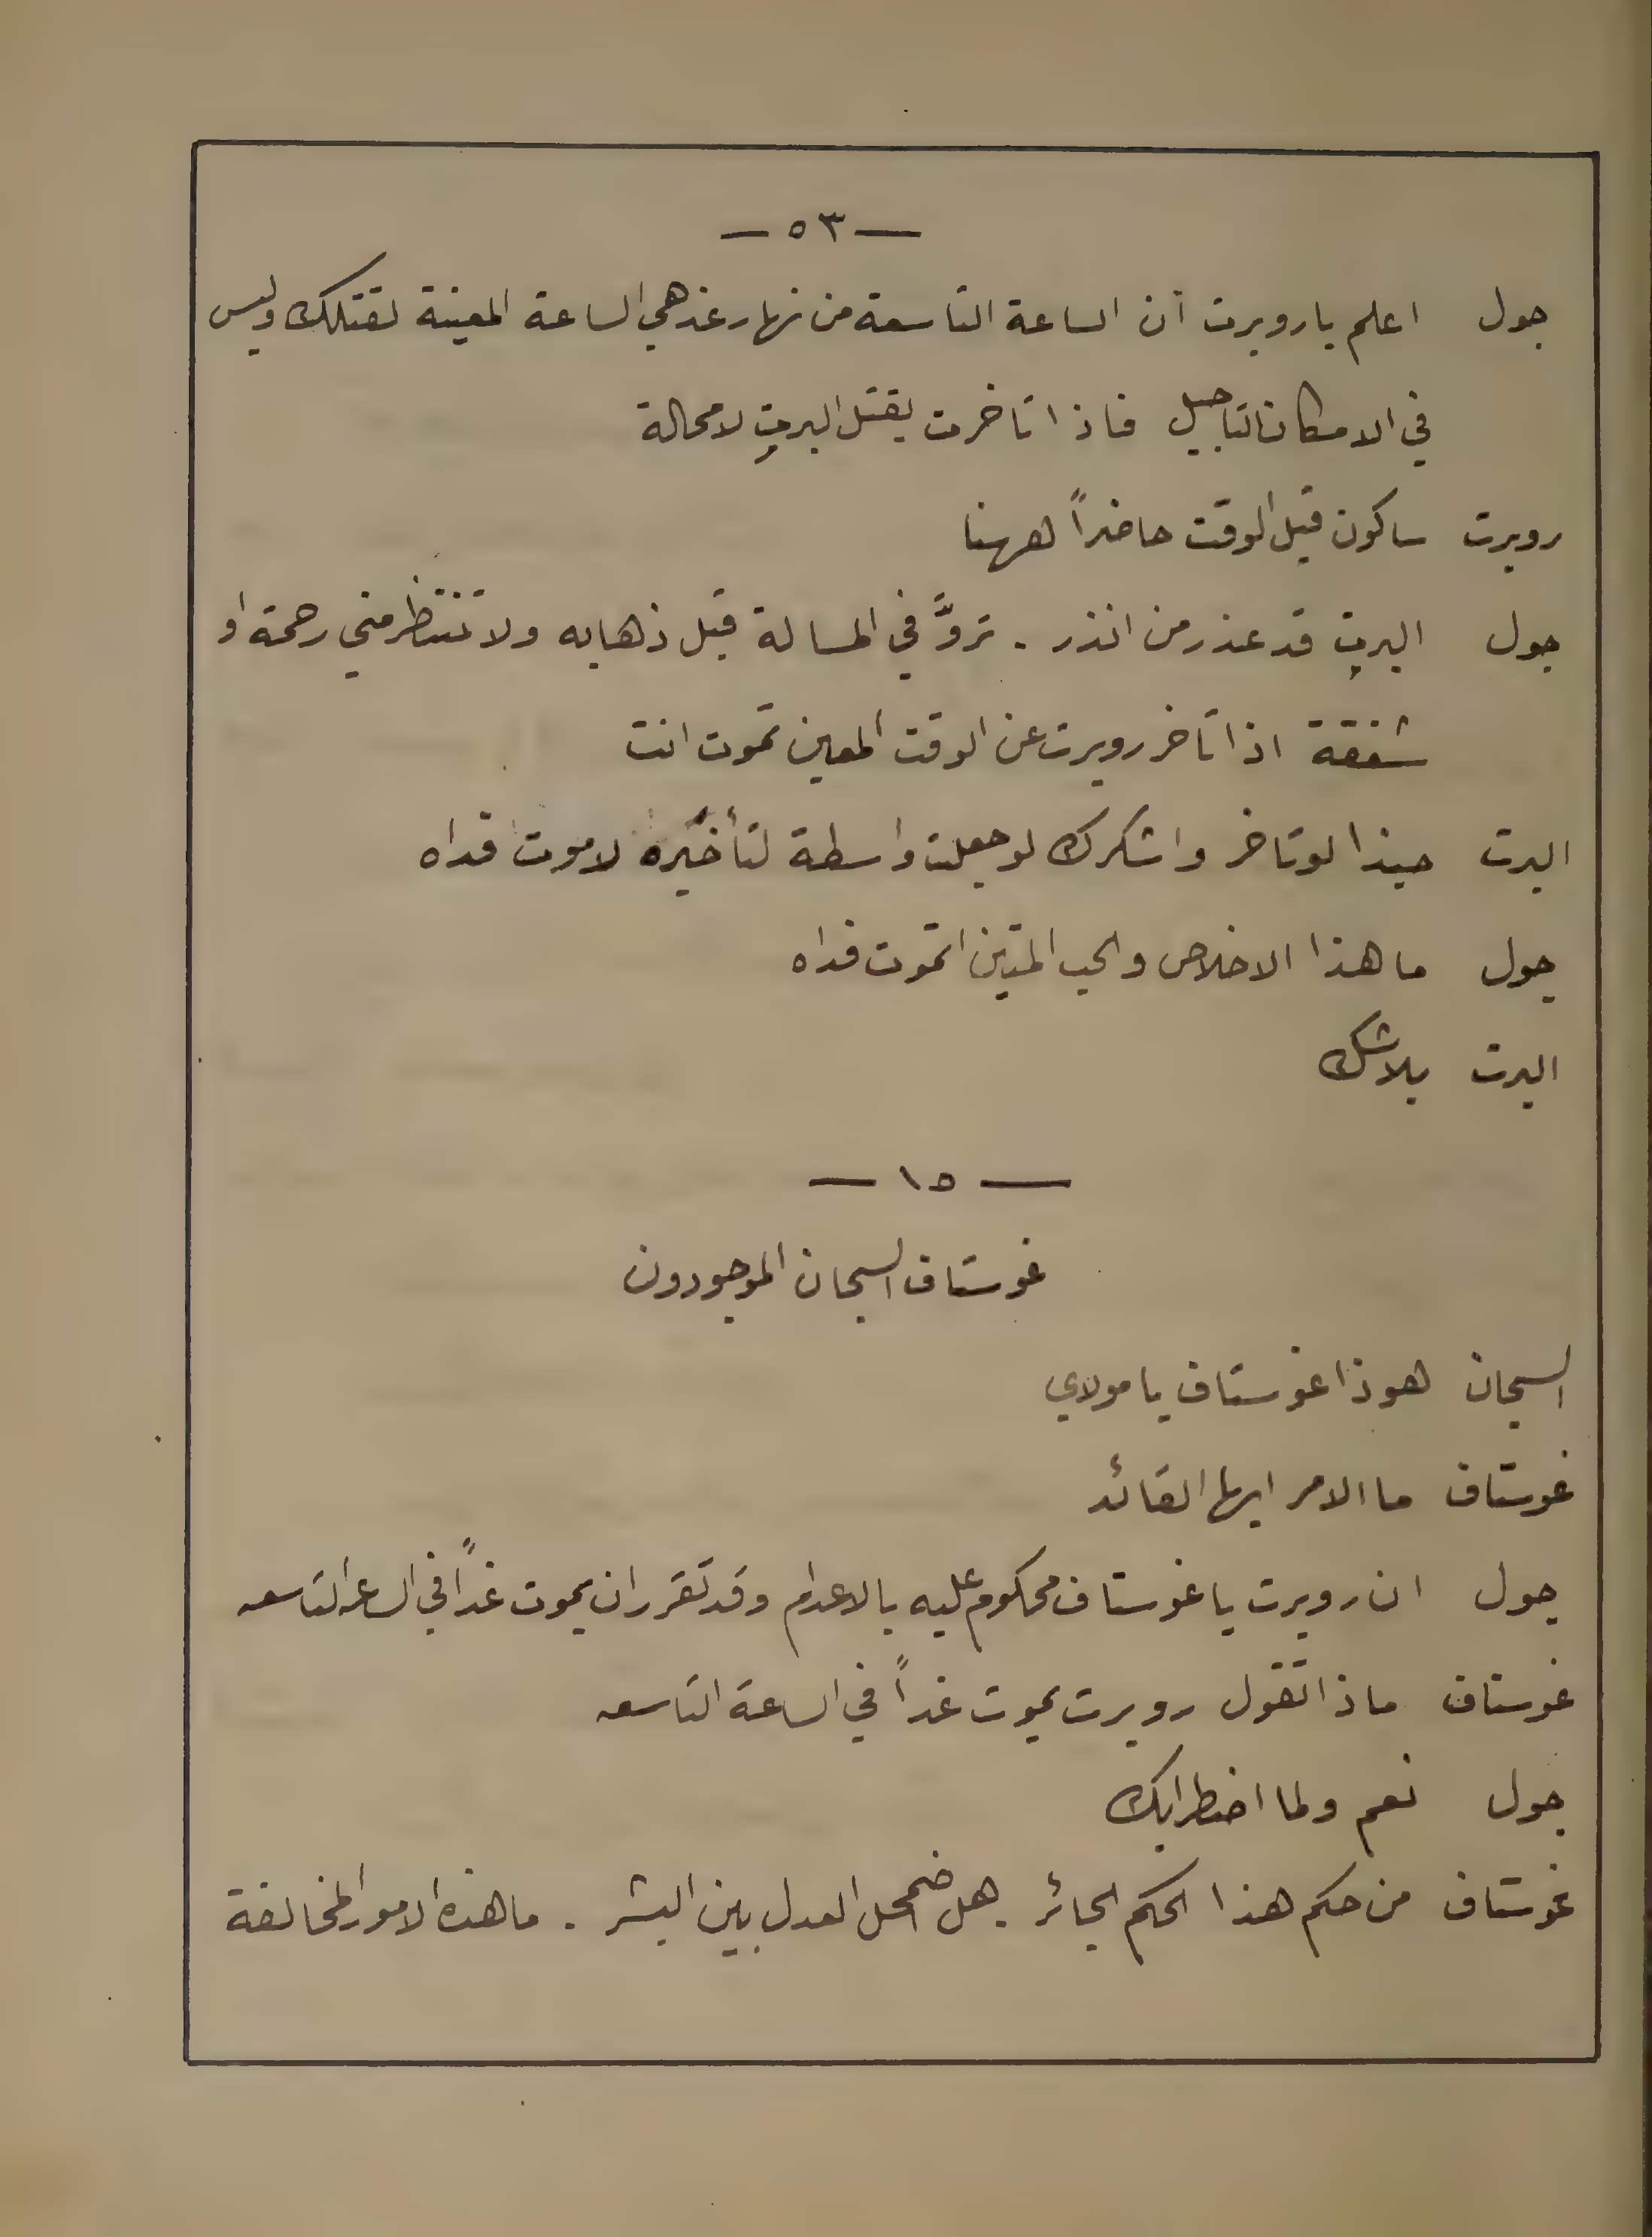 — ٥٣ —
جول اعلم يا روبرت أن الساعة التاسعة من نهار غد هي الساعة المعينة لقتلك وليس
في الامكان التاجيل فاذا تاخرت يقتل البرت لا محالة
روبرت ساكون قبل الوقت حاضراً ههنا
جول البرت قد عذر من انذر . تروَّ في المسالة قبل ذهابه ولا تنتظر مني رحمة او
شفقة اذا تاخر روبرت عن الوقت المعين تموت انت
البرت حبذا لو تاخر واشكرك لو جعلت واسطة لتأخيره لاموت فداه
جول ما هذا الاخلاص والحب المتين اتموت فداه
البرت بلا شك
— ١٥ —
غوستاف السجان الموجودون
السجان هوذا غوستاف يا مولاي
غوستاف ما الامر ايها القائد
جول ان روبرت يا غوستاف محكوم عليه بالاعدام وقد تقرر ان يموت غداً في الساعه التاسعه
غوستاف ماذا تقول روبرت يموت غداً في الساعة التاسعه
جول نعم ولما اضطرابك
غوستاف من حكم هذا الحكم الجائر هل اضمحل العدل بين البشر . ما هذه الامور المخالفة